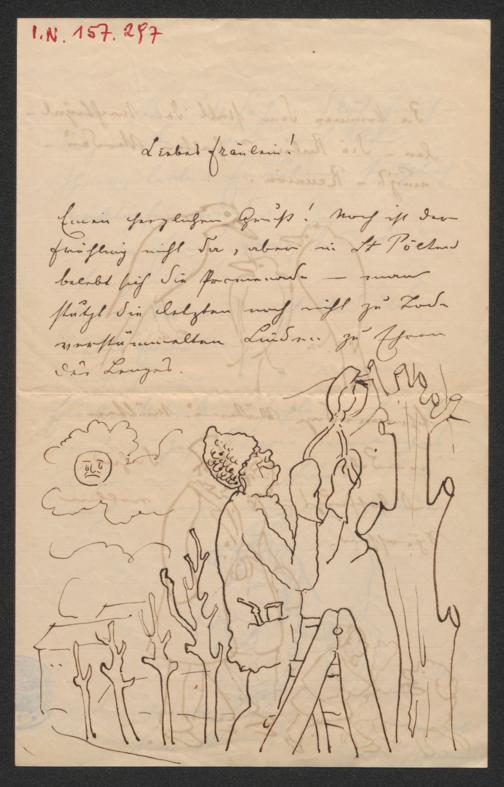 I.N. 157.297
Liebes Fräulein!
Einen herzlichen Gruß! Noch ist der
Frühling nicht da, aber in St Pölten
belebt sich die Promenade — man
stutzt die letzten noch nicht zu Tode
verstümmelten Linden zu Ehren
des Lenzes.